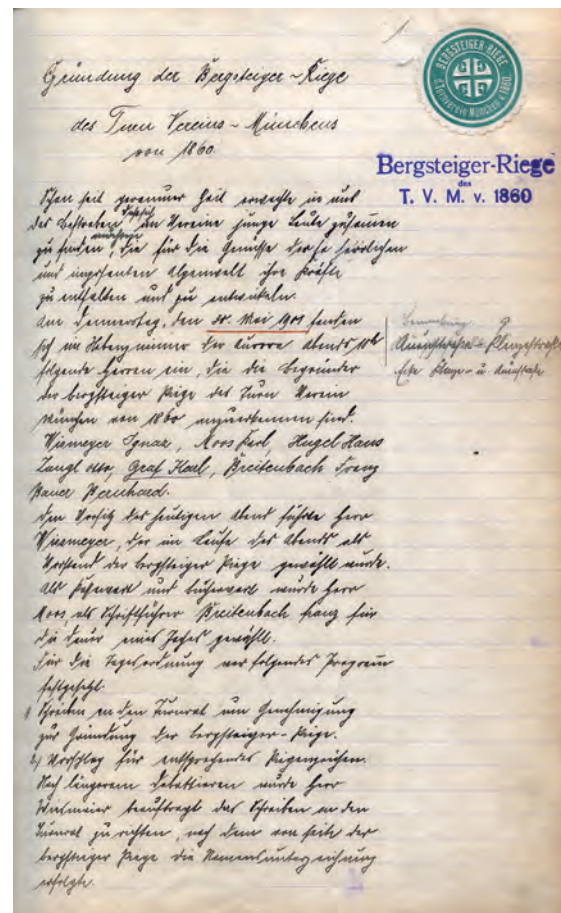 1
BERGSTEIGER-RIEGE
d. Turnverein München v. 1860.
Gründung der Bergsteiger-Riege
des Turn Vereins-Münchens
von 1860.
Bergsteiger-Riege
des
T. V. M. v. 1860
Schon seit geraumer Zeit erwachte in uns
das Bestreben im Vereine junge Leute zusamen
zu finden, die für die Genüsse der so herrlichen
und imposanten Alpenwelt ihre Kräfte
zu entfalten und zu entwickeln.
Am Donnerstag, den 30. Mai 1901 fanden
sich im Nebenzimmer der Aurora abends
folgende Herren ein, die die Begründer
der bergsteiger Riege des Turn Verein
München von 1860 anzuerkennen sind.
Wiesmeyer Ignaz, Moos Karl, Hugel Hans
Zangl Otto, Graf Karl, Breitenbach Franz
Bauer Bernhard.
Den Vorsitz des heutigen Abend führte Herr
Wiesmeyer, der im Laufe des Abends als
Vorstand der bergsteiger Riege gewählt wurde.
Als und bücherwart wurde Herr
Moos, als Schriftführer Breitenbach franz für
die Dauer eines Jahres gewählt.
Für die Tagesordnung war folgendes Program
festgesetzt.
1 Schreiben an den Turnrat um Genehmigung
zur Gründung der bergsteiger-Riege.
2) Vorschlag für entsprechendes Riegenzeichen.
Nach längerem debattieren wurde Herr
Wiesmeier beauftragt das Schreiben an den
Turnrat zu richten, nach dem von seite der
bergsteiger Riege die Namensunterzeichnung
erfolgte.
Ecke Klenze- u.